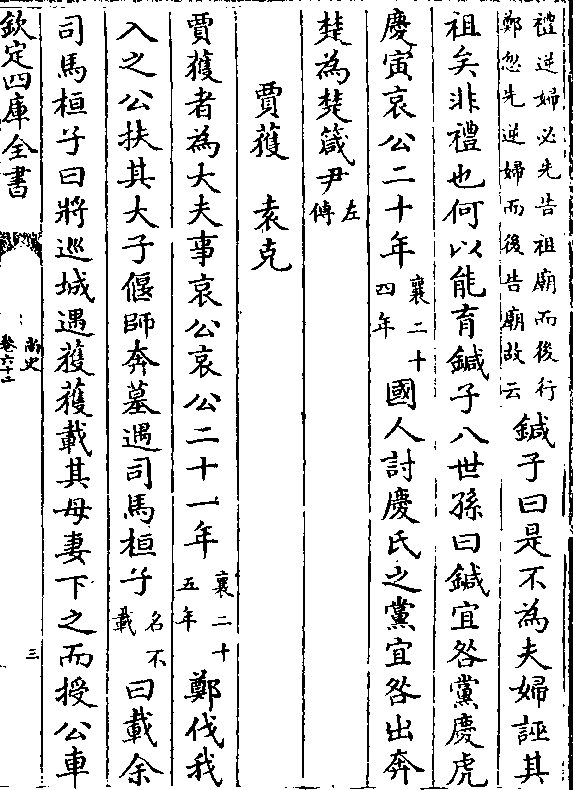 禮逆婦必先告祖廟而後行
鄭忽先逆婦而後告廟故云
鍼子曰是不為夫婦誣其
祖矣非禮也何以能育鍼子八世孫曰鍼宜咎黨慶虎
慶寅哀公二十年襄二十四年國人討慶氏之黨宜咎出奔
楚為楚箴尹左傳
賈獲 袁克
賈獲者為大夫事哀公哀公二十一年襄二十五年鄭伐我
入之公扶其大子偃師奔墓遇司馬桓子名不載曰載余
司馬桓子曰將巡城遇獲獲載其母妻下之而授公車
欽定四庫全書
尚史
卷六十二
三